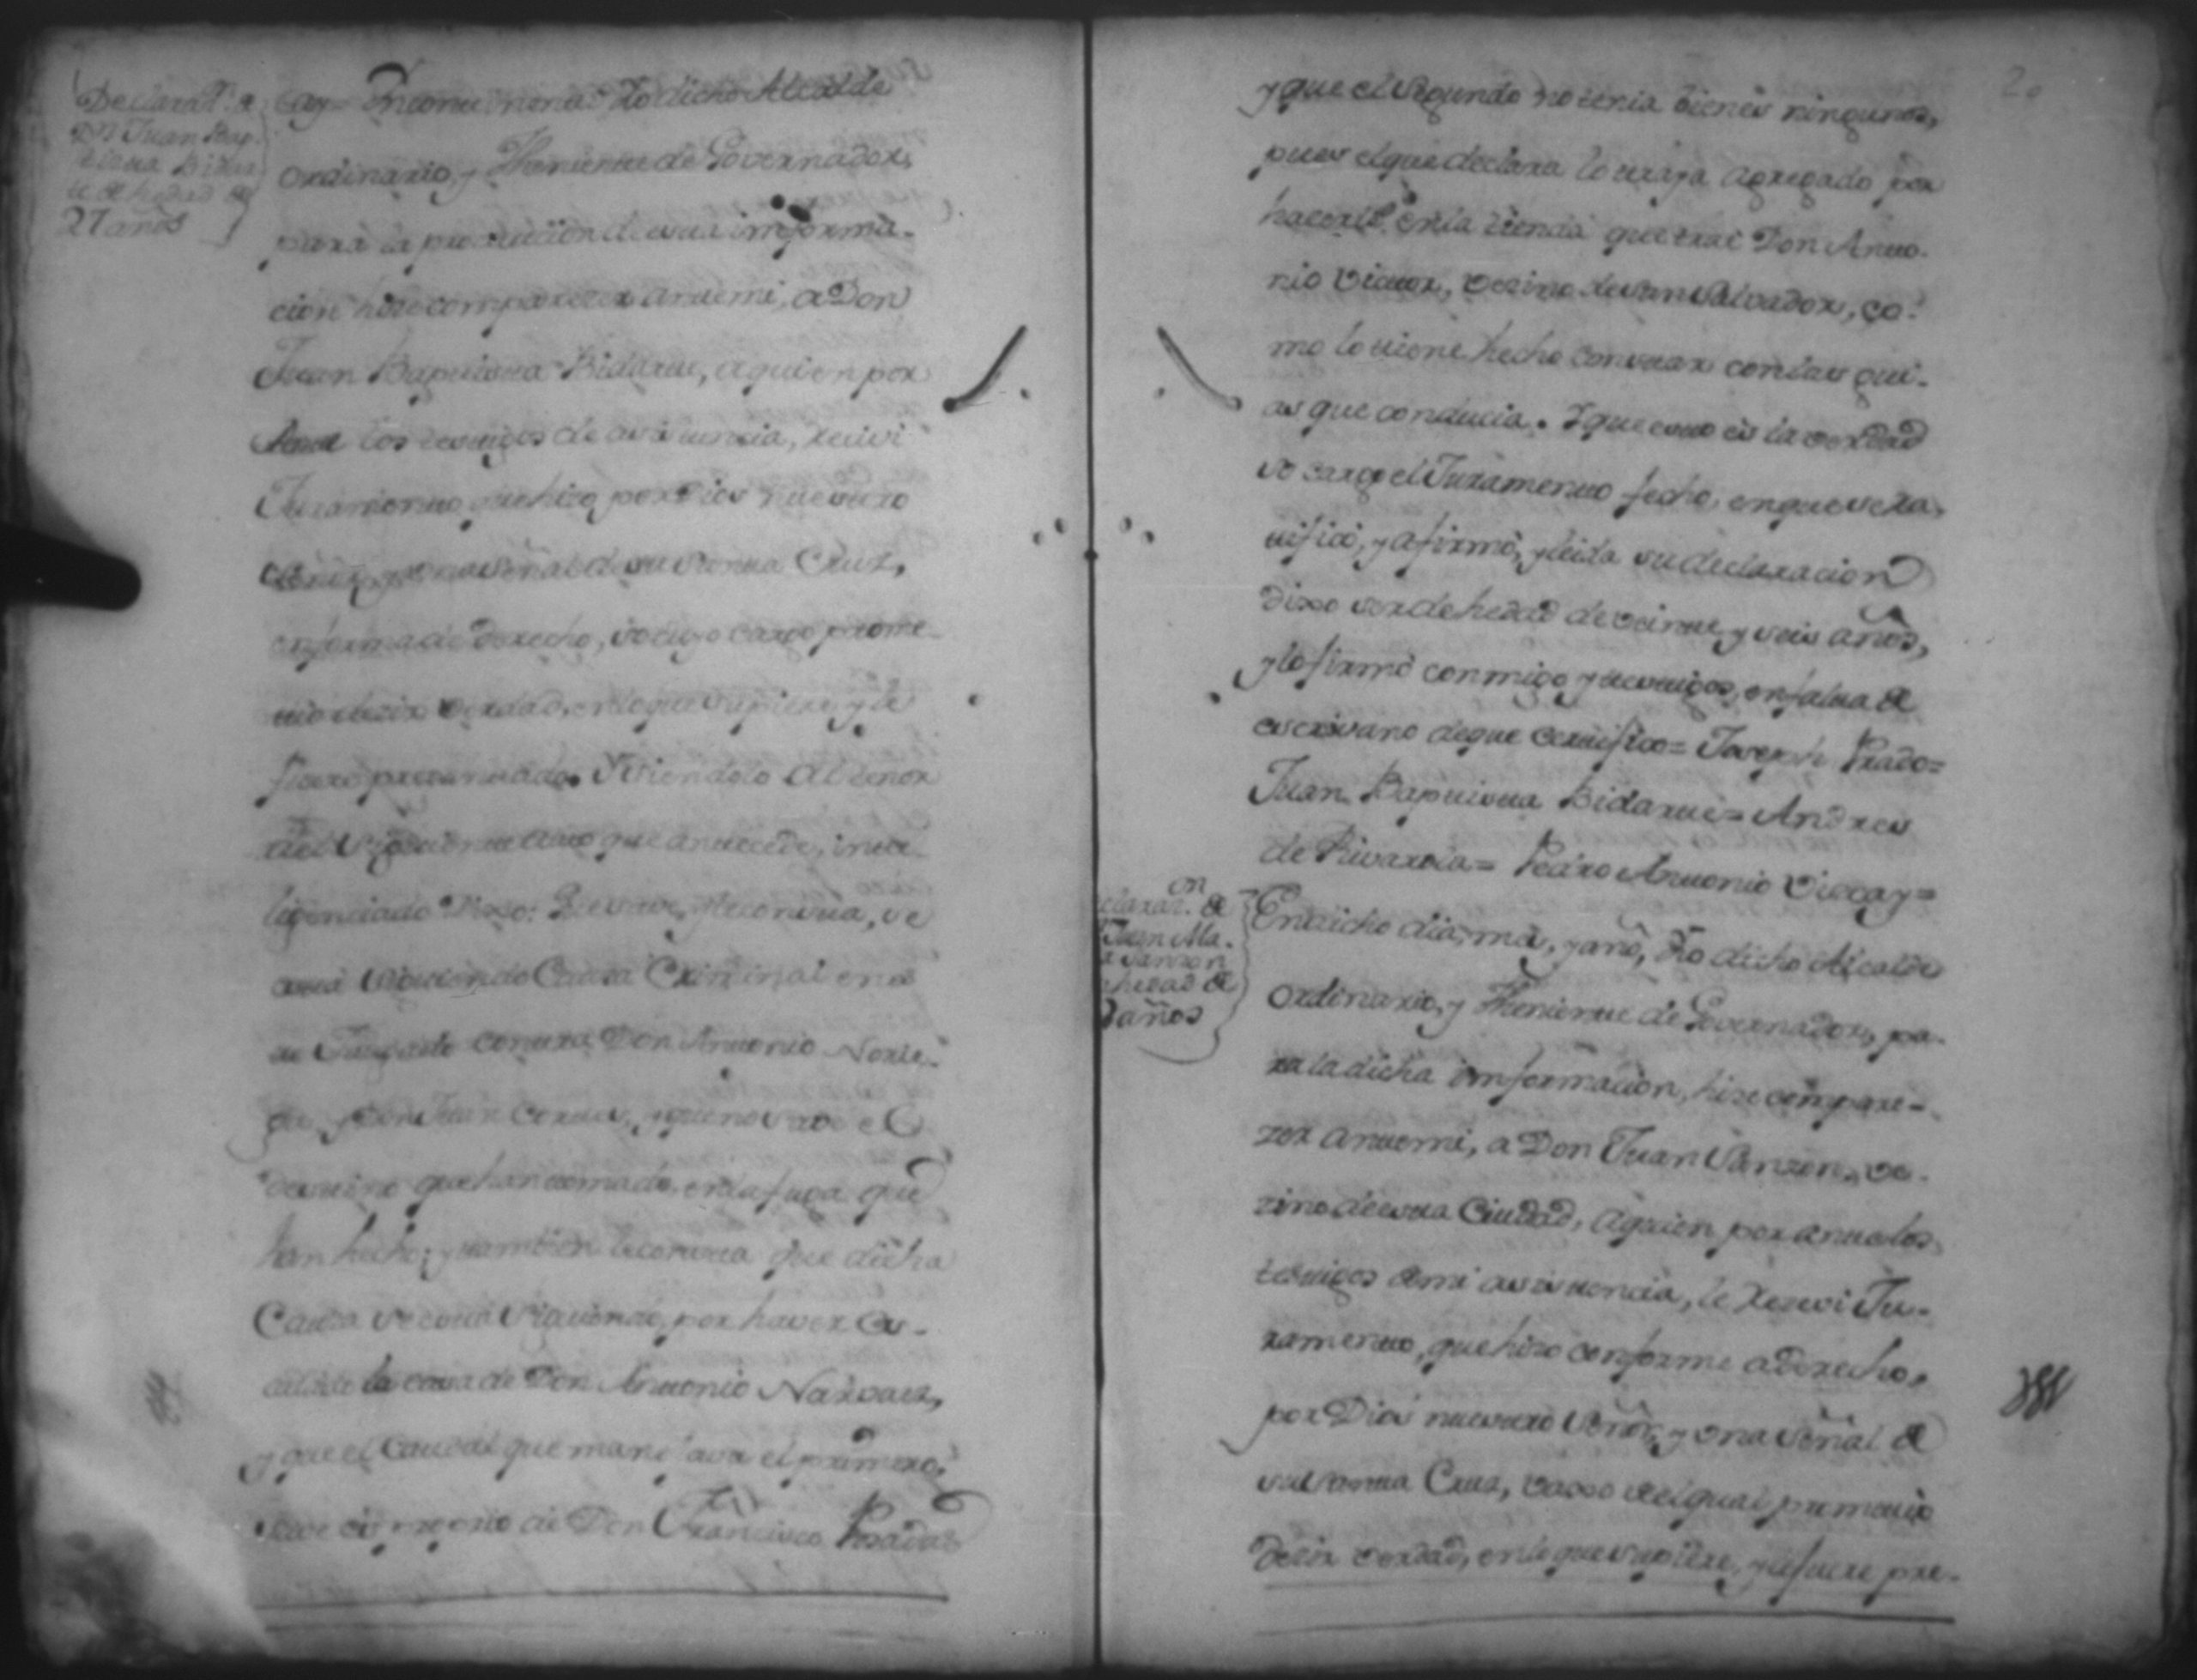 Declarazn. de
Dn Juan Bap-
tista Bidar
te de hedad de
27 años
cay= Incontinenti Yo dicho Alcalde
ordinario, y Theniente de Governador,
para la prosecucion de esta imforma-
cion hize comparezer antemi, a Don
Juan Baptista Bidarte, a quien por
Ante los testigos de asistencia, recivi
Juramento que hizo por Dios nuestro
Señor, y una señal de su Santa Cruz,
en forma de derecho, so cuyo cargo prome-
tio dezir verdad, en lo que supiere, y le
fuere preguntado. Y siendolo al tenor
del que antecede, inte-
ligenciado Dixo: que save, y le consta, se
está siguiendo Causa Criminal en es-
te Juzgado contra Don Antonio Norie-
ga, y Don Juan Cortes, y que no save el
destino que han tomado, en la fuga que
han hecho; y tambien le consta que dicha
Causa se está siguiendo, por haver es-
calado la casa de Don Antonio Narvaez,
y que el caudal que manejava el primero,
save es propio de Don Francisco Posadas
20
y que el segundo no tenia bienes ningunos,
pues el que declara lo traya agregado por
hacerle en la tienda que trae Don Anto-
nio Victor, vezino de San Salvador, co-
mo lo tiene hecho constar con las gui-
as que conducia. Y que esto es la verdad
so cargo el Juramento fecho, en que se ra-
tificó, y afirmó, y leida su declaracion
Dixo ser de hedad de veinte, y seis años,
y lo firmó conmigo y testigos, en falta de
escrivano de que certifico= Joseph Prado=
Juan Baptista Bidarte= Andres
de Rivarola= Pedro Antonio Viscay=
claraz.on de
Juan Ma.
Sanzon
hedad de
años
En dicho dia, mes, y año, Yo dicho Alcalde
ordinario, y Theniente de Governador, pa-
ra la dicha imformacion, hize compare-
zer antemi, a Don Juan Sanzon, ve-
zino de esta Ciudad, a quien por ante los
testigos de mi asistencia, le Rezevi Ju-
ramento, que hizo conforme a derecho,
por Dios nuestro Señor, y una señal de
su Santa Cruz, vaxo del qual prometio
Dezir verdad, en lo que supiere, y le fuere pre-